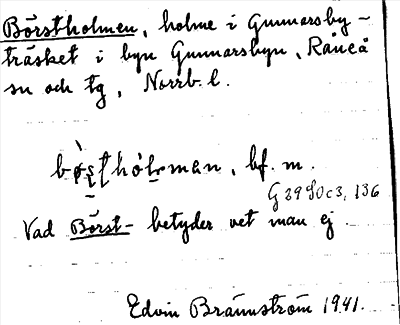 Börstholmen, holme i Gunnarsby-
träsket i byn Gunnarsbyn, Råneå
sn och tg, Norrb. l.
bf. m.
G 29 S0c3, 136
Vad Börst- betyder vet man ej.
Edvin Brännström 1941.